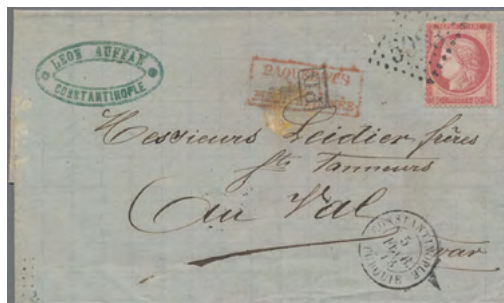 LEON AUFFAN
CONSTANTINOPLE
PAQUEBOTS
PD
Messieurs Leidier frères
fts Tanneurs
au Val
var
CONSTANTINOPLE
5
FEVR.
TURQUIE